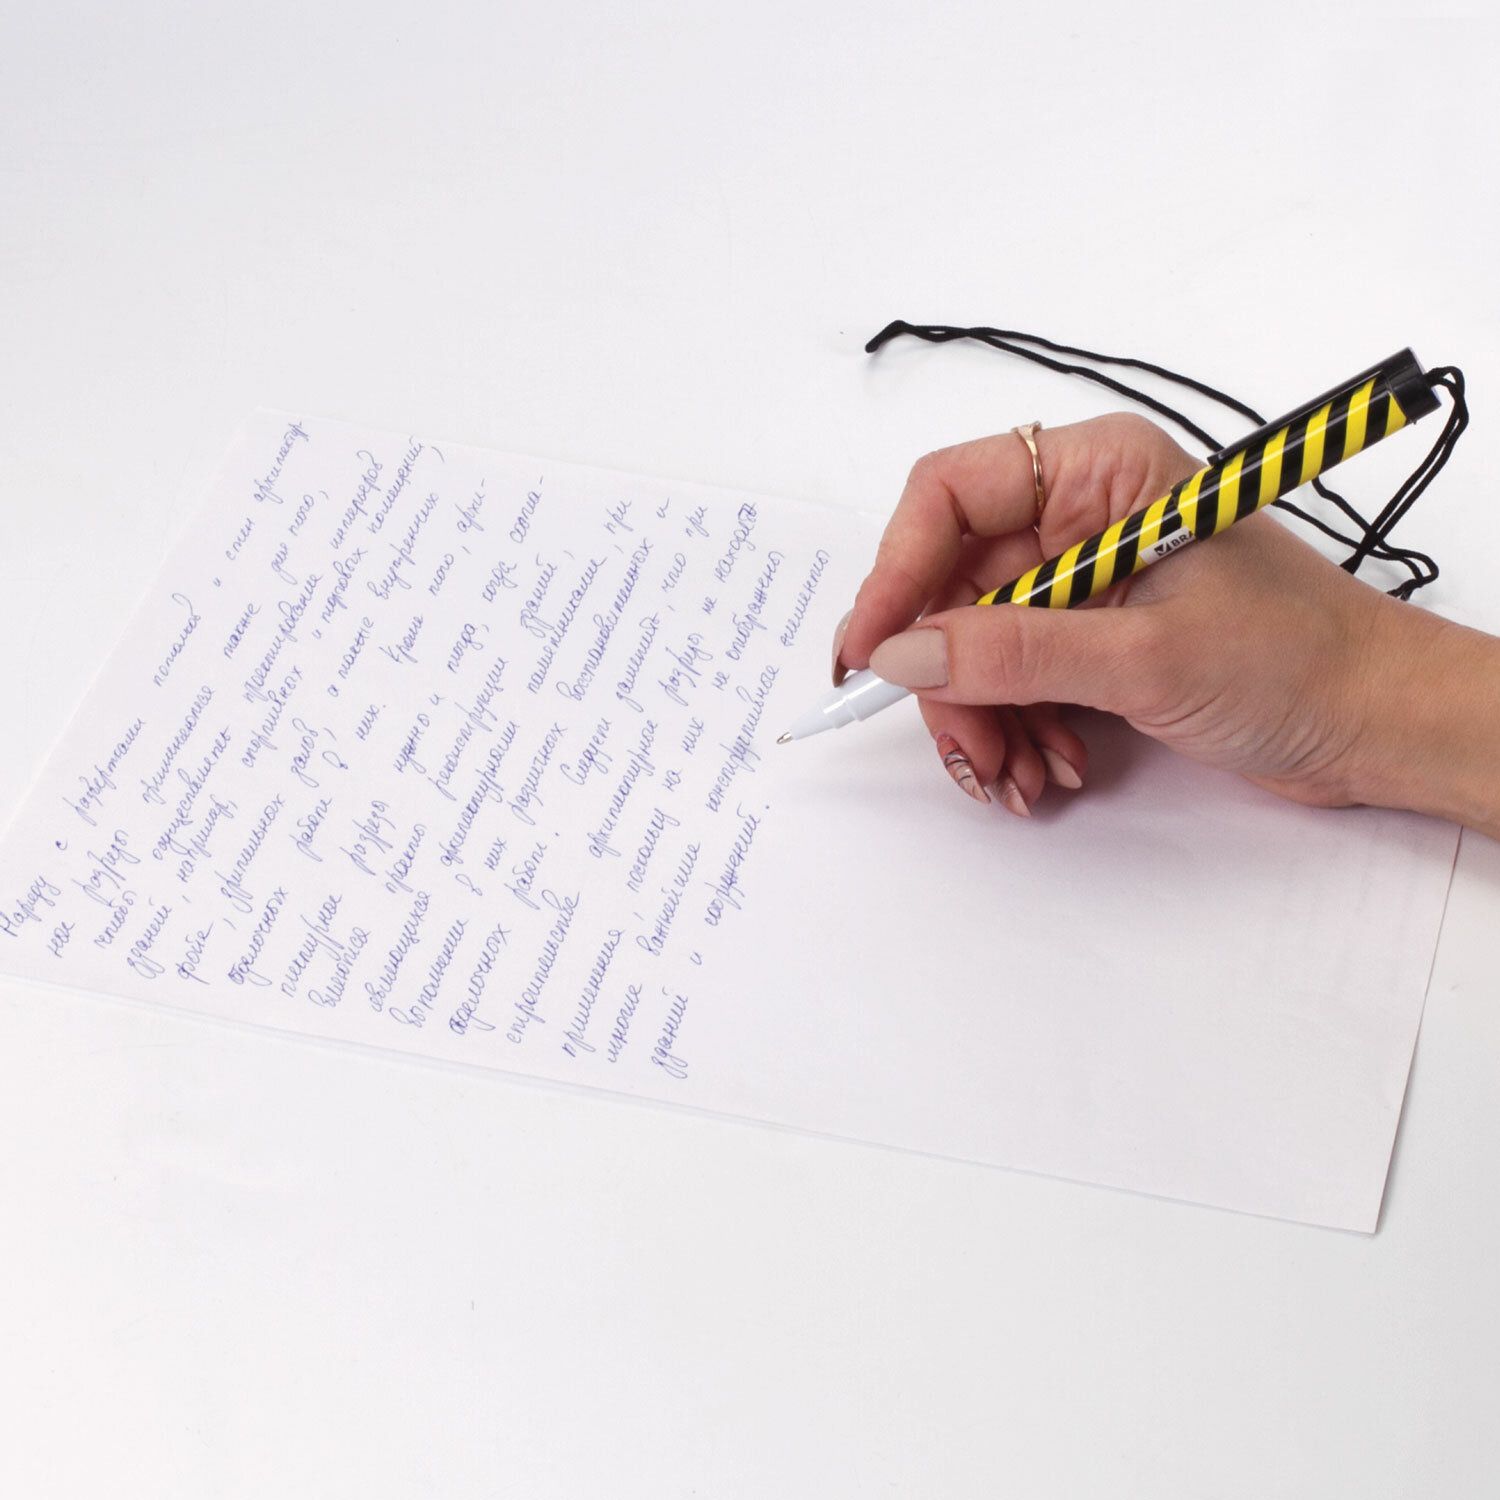 Наряду с развертками потолков и стен архитектур-
ные разрезы применяются также для того,
чтобы осуществлять проектирование интерьеров
зданий, например, спортивных и торговых помещений,
фойе, зрительных залов, а также внутренних
отделочных работ в них. Кроме того, архи-
тектурные разрезы нужно и тогда, когда соста-
вляются проекты реконструкции зданий,
являющихся архитектурными памятниками, при
выполнении в них различных восстановительных и
отделочных работ. Следует заметить, что при
строительстве архитектурные разрезы не находят
применения, поскольку на них не отображены
многие важнейшие конструктивные элементы
зданий и сооружений.
BRA